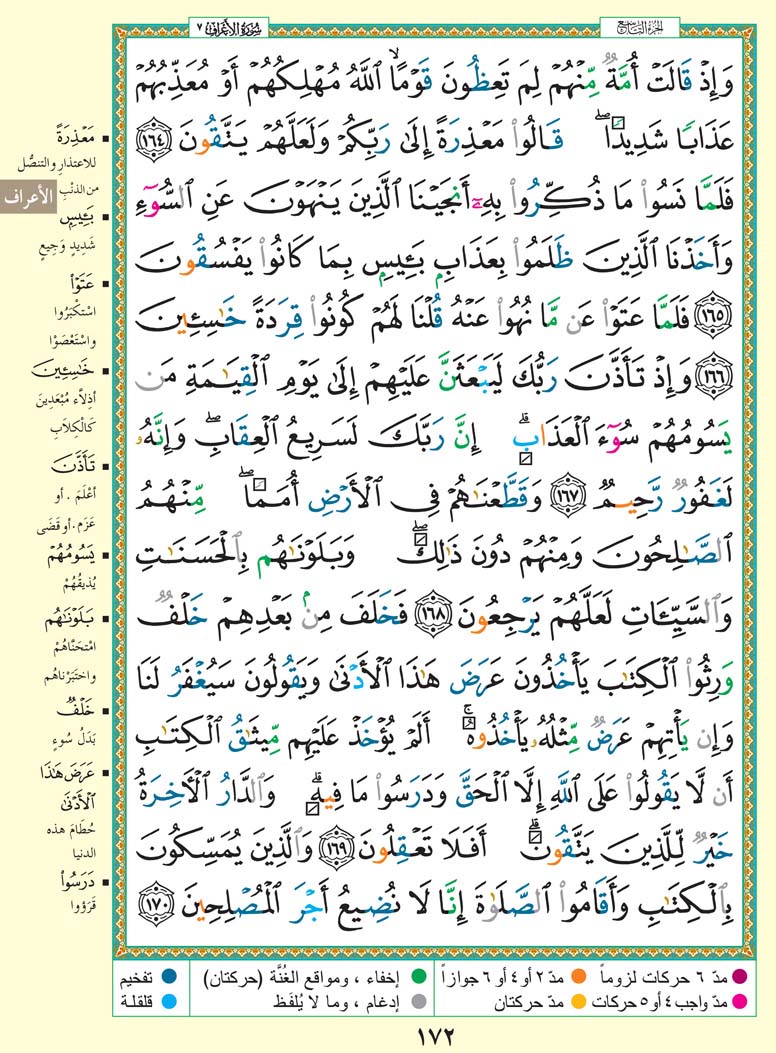 سُورَةُ الأَعْرَاف ٧
الجزء التاسع
وَإِذۡ قَالَتۡ أُمَّةٞ مِّنۡهُمۡ لِمَ تَعِظُونَ قَوۡمًا ٱللَّهُ مُهۡلِكُهُمۡ أَوۡ مُعَذِّبُهُمۡ
عَذَابٗا شَدِيدٗاۖ قَالُواْ مَعۡذِرَةً إِلَىٰ رَبِّكُمۡ وَلَعَلَّهُمۡ يَتَّقُونَ ١٦٤
فَلَمَّا نَسُواْ مَا ذُكِّرُواْ بِهِۦٓ أَنجَيۡنَا ٱلَّذِينَ يَنۡهَوۡنَ عَنِ ٱلسُّوٓءِ
وَأَخَذۡنَا ٱلَّذِينَ ظَلَمُواْ بِعَذَابِۭ بَـِٔيسِۭ بِمَا كَانُواْ يَفۡسُقُونَ
١٦٥ فَلَمَّا عَتَوۡاْ عَن مَّا نُهُواْ عَنۡهُ قُلۡنَا لَهُمۡ كُونُواْ قِرَدَةً خَٰسِـِٔينَ
١٦٦ وَإِذۡ تَأَذَّنَ رَبُّكَ لَيَبۡعَثَنَّ عَلَيۡهِمۡ إِلَىٰ يَوۡمِ ٱلۡقِيَٰمَةِ مَن
يَسُومُهُمۡ سُوٓءَ ٱلۡعَذَابِۗ إِنَّ رَبَّكَ لَسَرِيعُ ٱلۡعِقَابِۖ وَإِنَّهُۥ
لَغَفُورٞ رَّحِيمٞ ١٦٧ وَقَطَّعۡنَٰهُمۡ فِي ٱلۡأَرۡضِ أُمَمٗاۖ مِّنۡهُمُ
ٱلصَّٰلِحُونَ وَمِنۡهُمۡ دُونَ ذَٰلِكَۖ وَبَلَوۡنَٰهُم بِٱلۡحَسَنَٰتِ
وَٱلسَّيِّـَٔاتِ لَعَلَّهُمۡ يَرۡجِعُونَ ١٦٨ فَخَلَفَ مِنۢ بَعۡدِهِمۡ خَلۡفٞ
وَرِثُواْ ٱلۡكِتَٰبَ يَأۡخُذُونَ عَرَضَ هَٰذَا ٱلۡأَدۡنَىٰ وَيَقُولُونَ سَيُغۡفَرُ لَنَا
وَإِن يَأۡتِهِمۡ عَرَضٞ مِّثۡلُهُۥ يَأۡخُذُوهُۚ أَلَمۡ يُؤۡخَذۡ عَلَيۡهِم مِّيثَٰقُ ٱلۡكِتَٰبِ
أَن لَّا يَقُولُواْ عَلَى ٱللَّهِ إِلَّا ٱلۡحَقَّ وَدَرَسُواْ مَا فِيهِۗ وَٱلدَّارُ ٱلۡأٓخِرَةُ
خَيۡرٞ لِّلَّذِينَ يَتَّقُونَۗ أَفَلَا تَعۡقِلُونَ ١٦٩ وَٱلَّذِينَ يُمَسِّكُونَ
بِٱلۡكِتَٰبِ وَأَقَامُواْ ٱلصَّلَوٰةَ إِنَّا لَا نُضِيعُ أَجۡرَ ٱلۡمُصۡلِحِينَ ١٧٠
مَعْذِرَةً
للاعتذارِ والتنصُّلِ
من الذنْبِ
الأعراف
بَئِيسٍ
شَدِيدٍ وَجِيعٍ
عَتَوْا
اسْتَكْبَرُوا
واسْتَعْصَوْا
خَٰسِـِٔينَ
أذِلاَّء مُبْعَدِينَ
كَالْكِلاَبِ
تَأَذَّنَ
أعْلَمَ . أو
عَزَمَ . أو قَضَى
يَسُومُهُمْ
يُذيقُهُمْ
بَلَوْنَٰهُمْ
امْتَحَنَّاهُمْ
واخْتَبَرْناهُم
خَلْفٌ
بَدَلُ سُوءٍ
عَرَضَ هَٰذَا
ٱلْأَدْنَىٰ
حُطَامَ هذه
الدنيا
دَرَسُوا
قَرَؤُوا
مدّ ٦ حركات لزوماً
مدّ ٢ أو ٤ أو ٦ جوازاً
إخفاء ، ومواقع الغُنَّة (حركتان)
تفخيم
مدّ واجب ٤ أو ٥ حركات
مدّ حركتان
إدغام ، وما لا يُلفَظ
قلقلة
١٧٢